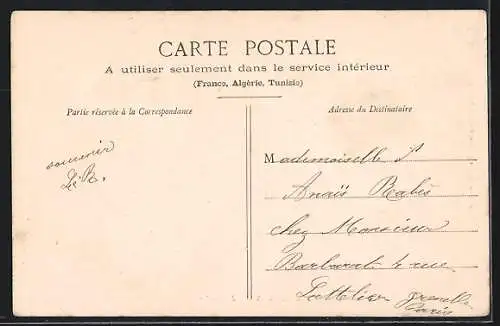 CARTE POSTALE
A utiliser seulement dans le service intérieur
(France, Algérie, Tunisie)
Partie réservée à la Correspondance
Adresse du Destinataire
souvenir
Mademoiselle
Anaïs
chez Monsieur
rue
Grenelle
Paris